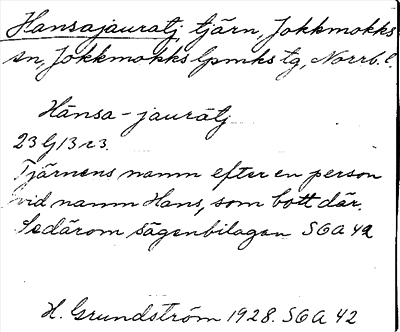 Hansajauratj, tjärn, Jokkmokks
sn, Jokkmokks lpmks tg, Norrb. l.
Hānsa-jaurātj
Tjärnens namn efter en person
vid namn Hans, som bott där.
Se därom sägenbilagan SGA 42
H. Grundström 1928. SGA 42